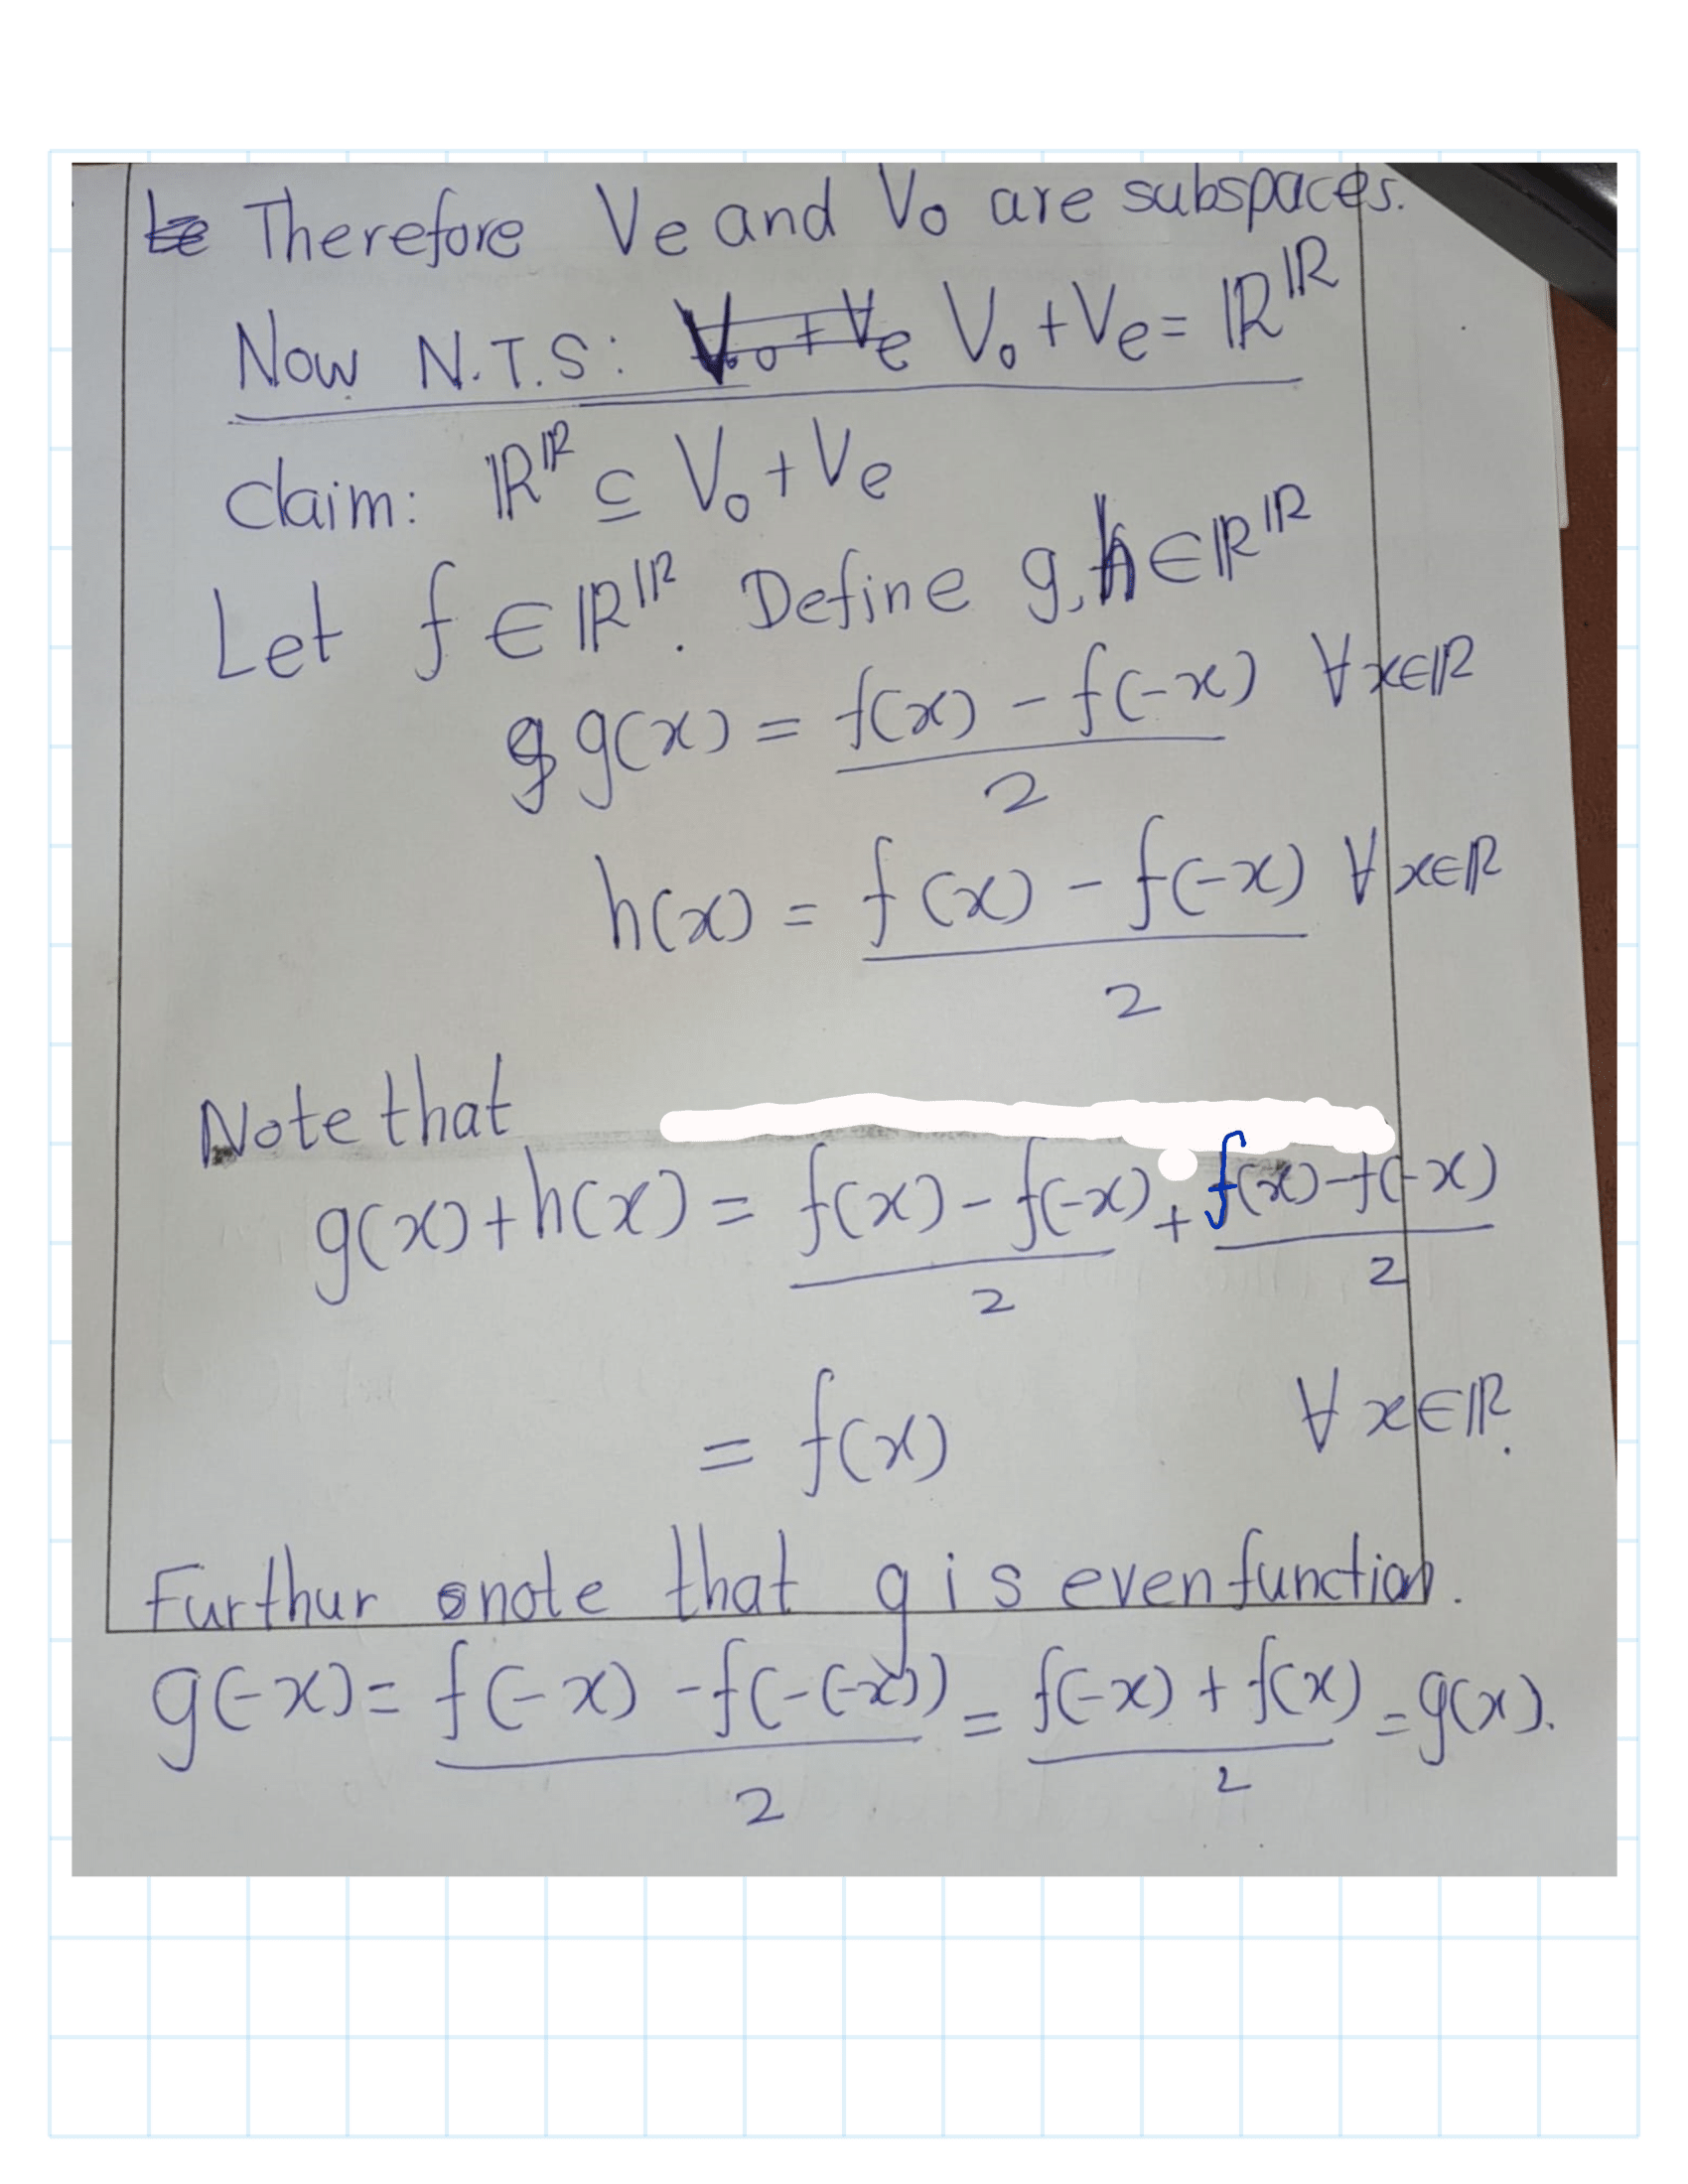 Therefore Ve and Vo are subspaces.
Now N.T.S: Vo + Ve = ℝ^ℝ
claim: ℝ^ℝ ⊆ Vo + Ve
Let f ∈ ℝ^ℝ. Define g, h ∈ ℝ^ℝ
g(x) = (f(x) - f(-x))/2 ∀ x∈ℝ
h(x) = (f(x) - f(-x))/2 ∀ x∈ℝ
Note that
g(x)+h(x) = (f(x) - f(-x))/2 + (f(x) - f(-x))/2
= f(x) ∀ x∈ℝ.
Furthur note that g is even function.
g(-x) = (f(-x) - f(-(-x)))/2 = (f(-x) + f(x))/2 = g(x).